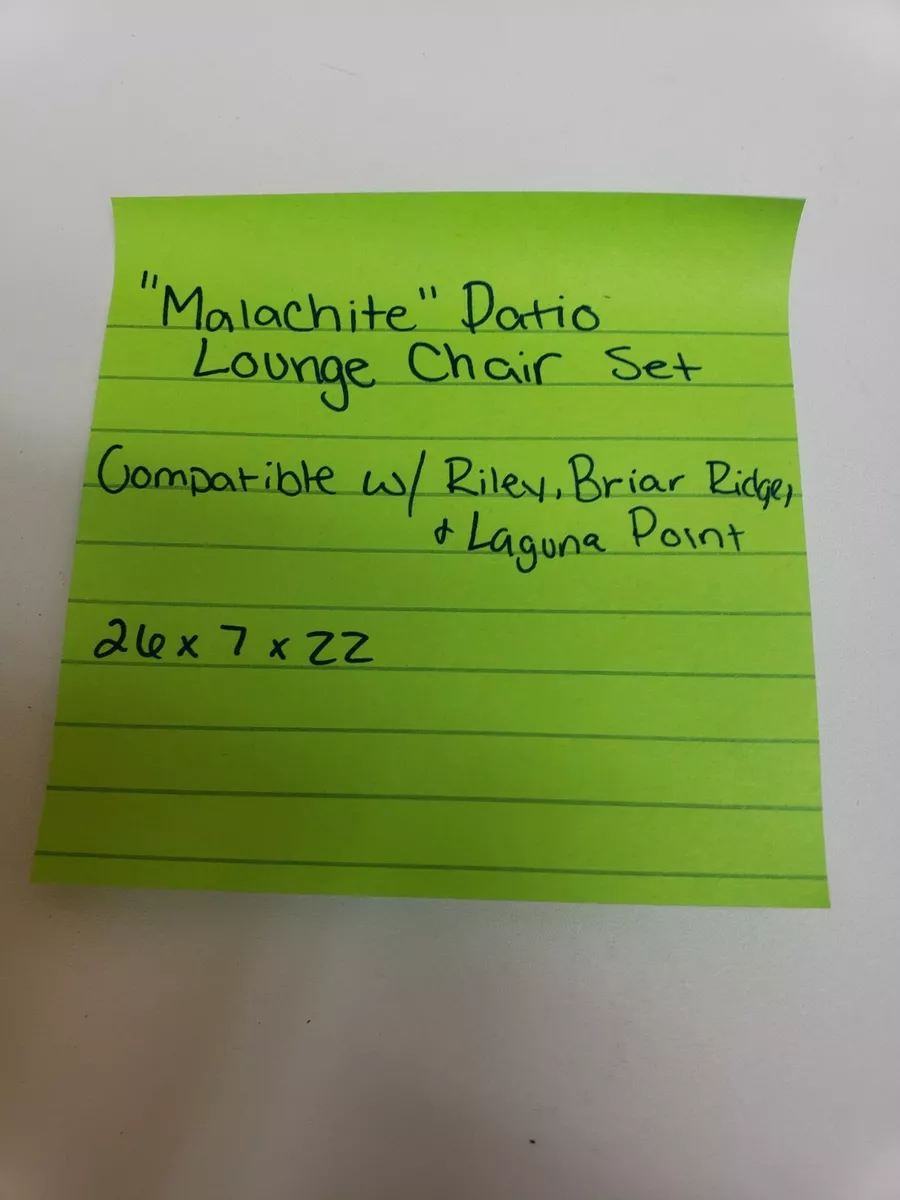 "Malachite" Patio
Lounge Chair Set
Compatible w/ Riley, Briar Ridge,
& Laguna Point
26 x 7 x 22